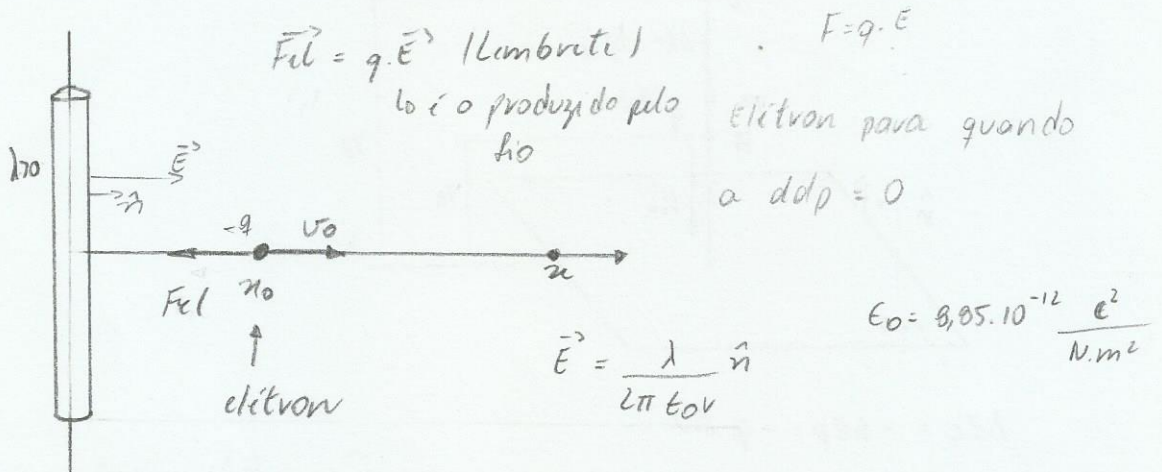 F⃗el = q.E⃗ (Lembrete)
↳ é o produzido pelo
fio
F=q.E
Elétron para quando
a ddp = 0
λ>0
E⃗
n̂
-q
v0
Fel
x0
x
elétron
E⃗ = λ/(2π ϵ0 r) n̂
ϵ0 = 8,85.10^-12 C²/N.m²